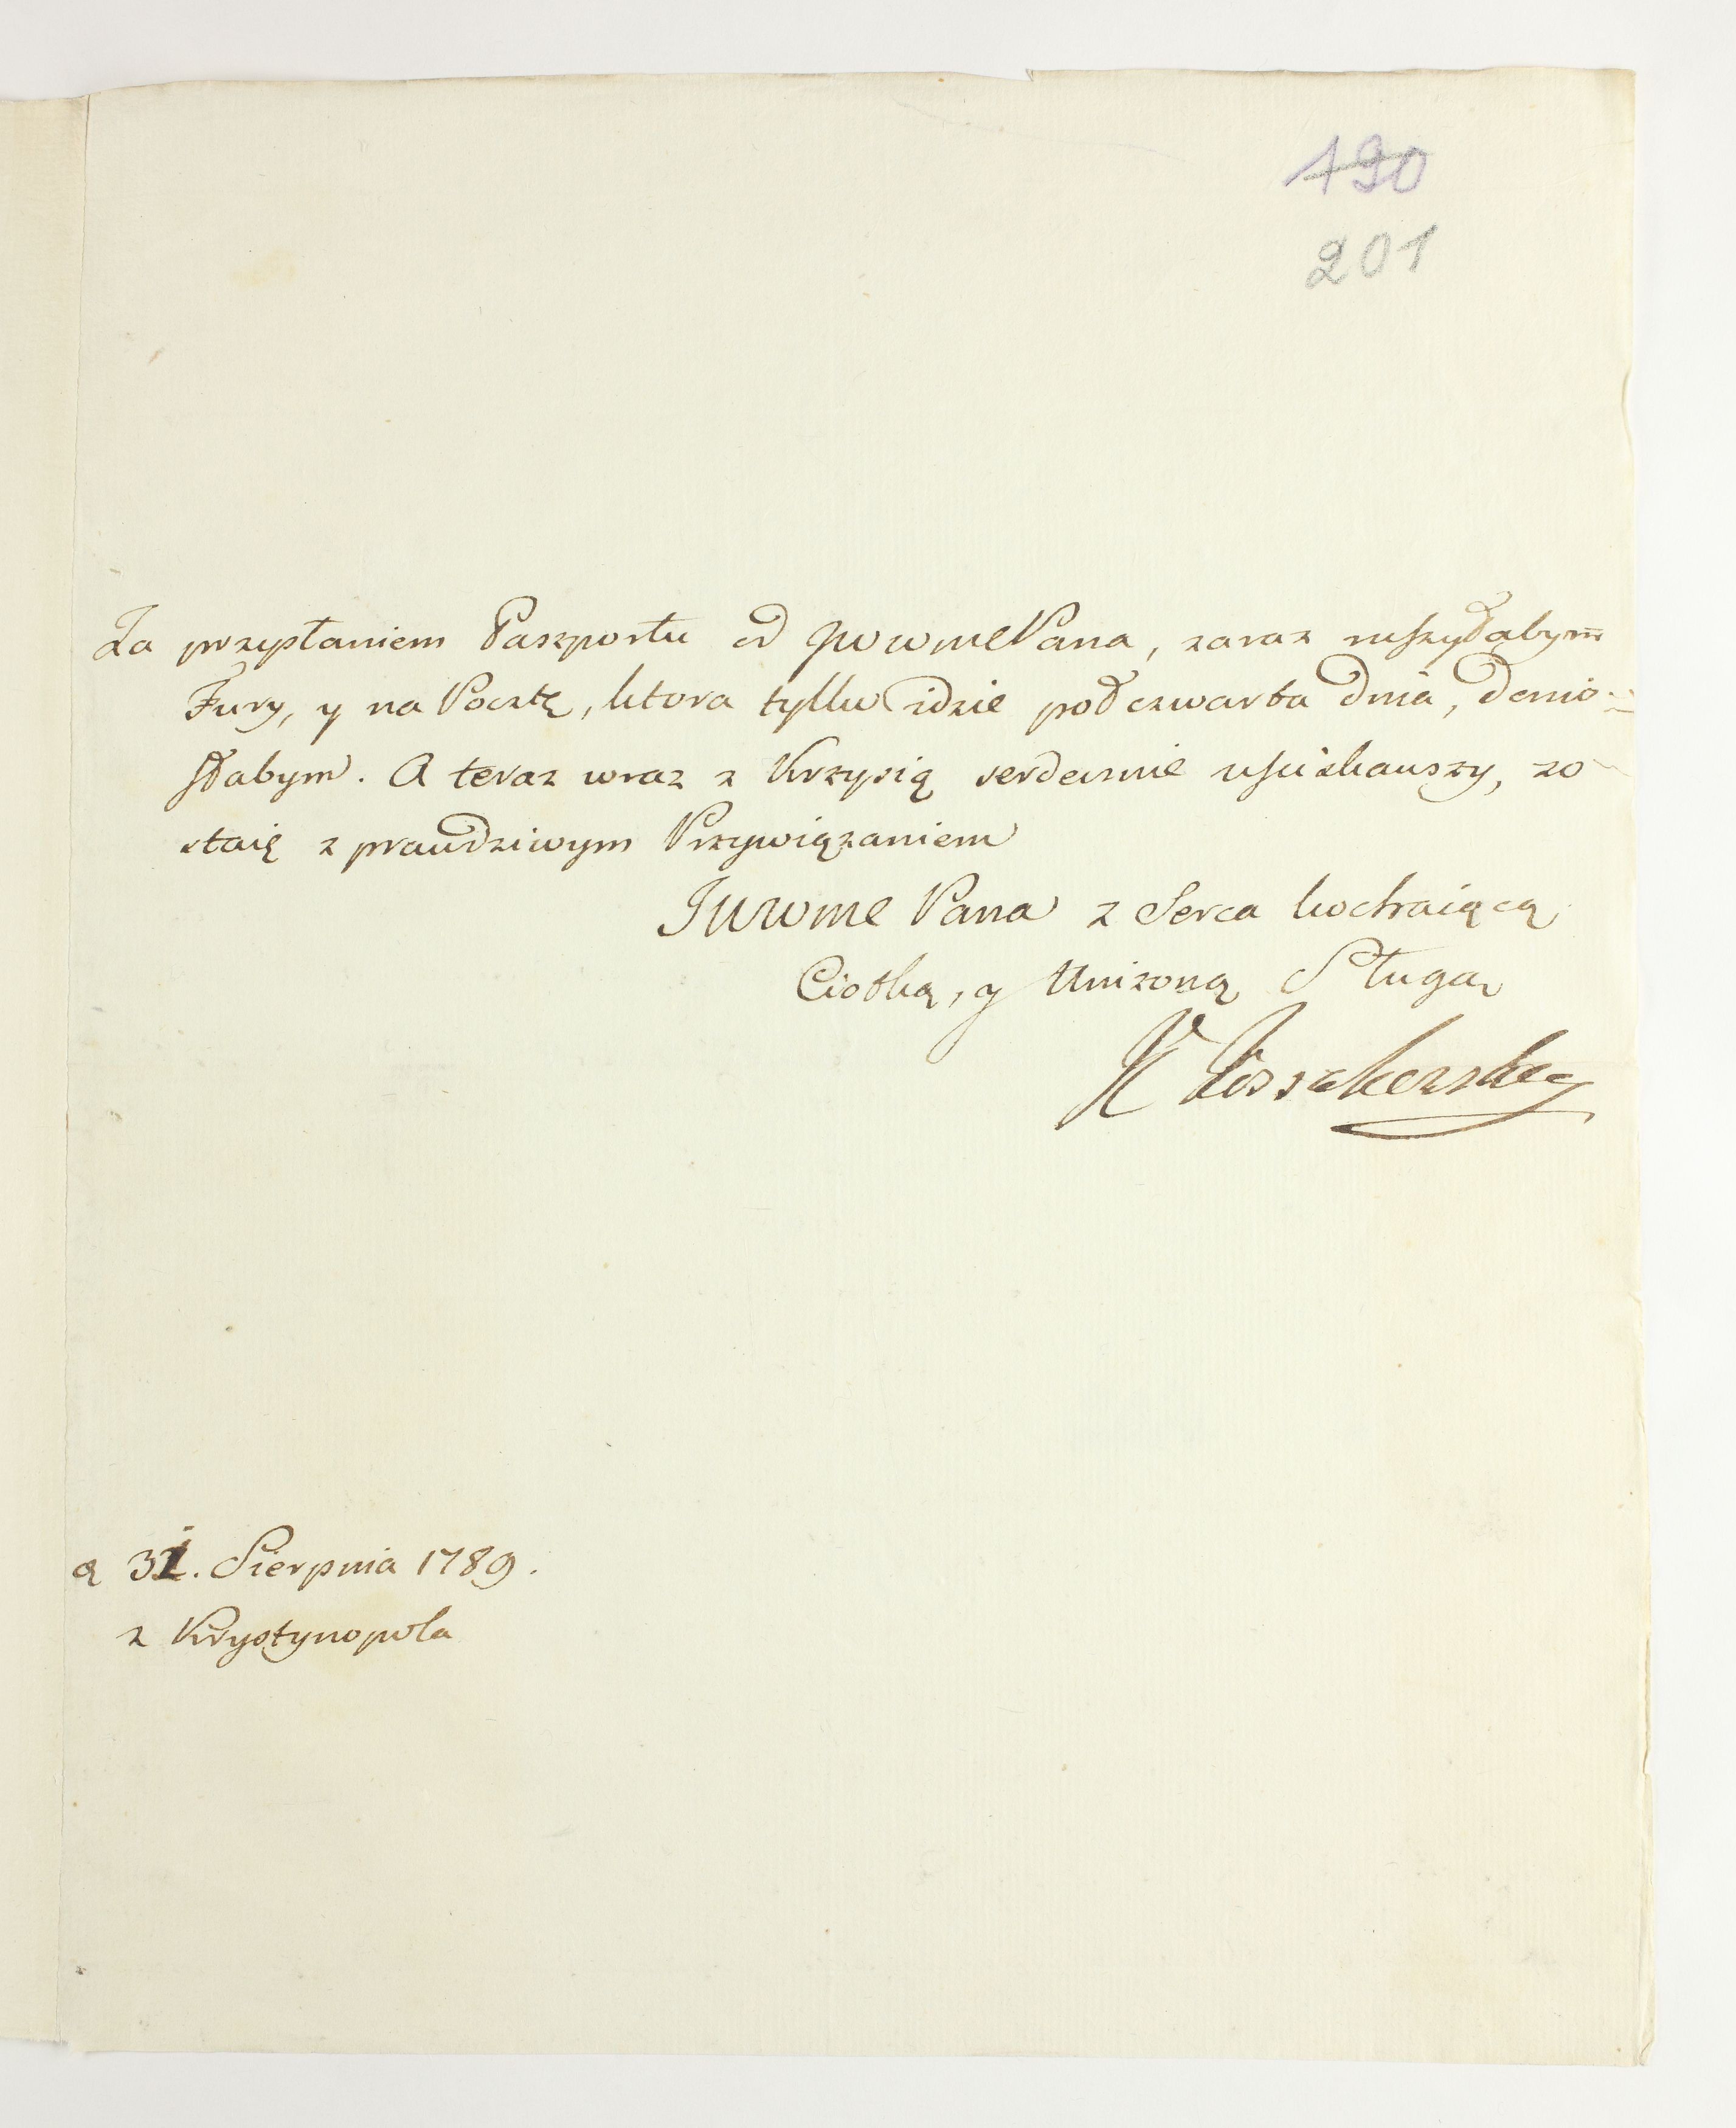 190
201
Za przysłaniem Paszportu od JWWMCPana, zaraz ruszyłabym
Fury, y na Pocztę, ktora tylko idzie pod czwarta dnia, donio-
słabym. A teraz wraz z Krzysią serdecznie uściskawszy, zo
staię z prawdziwym Przywiązaniem
JWWMC Pana z Serca kochaiącą
Ciotką, y Unizoną Sługą
K
d 31. Sierpnia 1789.
z Krystynopola